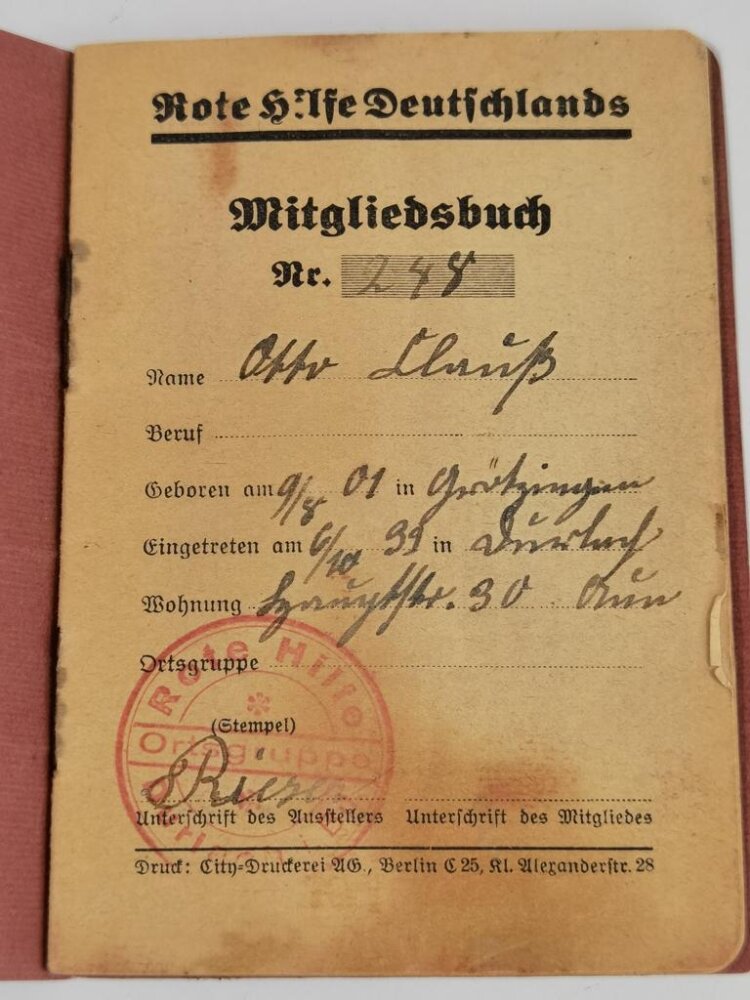 Rote Hilfe Deutschlands
Mitgliedsbuch
Nr. 248
Name Otto Clauß
Beruf
Geboren am 9/8 01 in Grötzingen
Eingetreten am 6/10 3 in Durlach
Wohnung Hauptstr. 30 Aue
Ortsgruppe
Rote Hilfe
(Stempel)
Ortsgruppe
Unterschrift des Ausstellers Unterschrift des Mitgliedes
Druck: City-Druckerei AG., Berlin C 25, Kl. Alexanderstr. 28